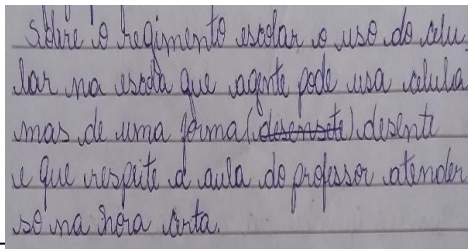 sobre o regimento escolar o uso do celu
lar na escola que agente pode usa celula
mas de uma forma (disensite) desenti
e que respeite a aula do professor atender
so na hora certa.